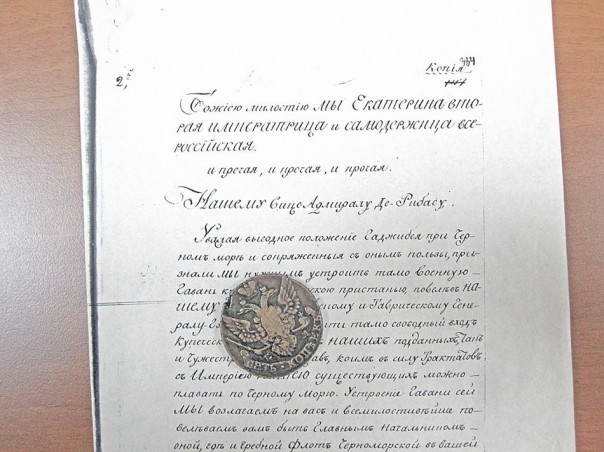 2,
Копія 384
Божіею милостию МЫ Екатерина вто
рая императрица и самодержица все-
россійская.
и прочая, и прочая, и прочая.
Нашему вице Адмиралу де-Рибасу.
Уважая выгодное положеніе Гаджибея при Чер-
номъ морѣ и сопряженныя съ онымъ пользы, при-
знали МЫ нужнымъ устроить тамо военную
гавань ку скою пристанью, повелѣвъ НА-
шему ному и Таврическому Гене-
ралу- ти тамо свободный входъ
Купечес НАШИХЪ подданныхъ, такъ
и чужестр авъ, коимъ въ силу трактатовъ
съ Имперіею существующихъ можно
плавать по Черному Морю. Устроеніе гавани сей
МЫ возлагаемъ на васъ и Всемилостивѣйше по-
велѣваемъ вамъ быть Главнымъ Начальником
оной, гдѣ и гребной Флотъ Черноморской въ вашей
ПЯТЬ КОПѢЕКЪ